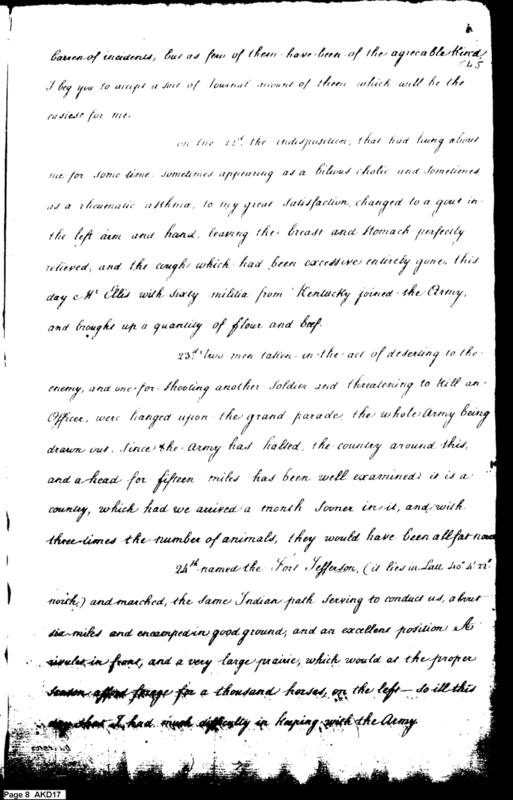 barren of incidents, but as few of them have been of the agreeable Kind
45
I beg you to accept a sort of Journal account of them which will be the
easiest for me.
on the 22d. the indisposition, that had hung about
me for some time sometimes appearing as a bilious cholic and sometimes
as a rheumatic asthma, to my great satisfaction, changed to a gout in
the left arm and hand, leaving the breast and stomach perfectly
relieved, and the cough which had been excessive entirely gone, this
day Mr. Ellis with sixty militia from Kentucky joined the Army,
and brought up a quantity of flour and beef.
23d. two men taken in the act of deserting to the
enemy, and one for shooting another Soldier and threatening to kill an
Officer, were hanged upon the grand parade, the whole Army being
drawn out. Since the Army has halted, the country around this,
and a head for fifteen miles has been well examined, it is a
country, which had we arrived a month sooner in it, and with
three times the number of animals, they would have been all fat now
24th. named the Fort Jefferson, (it lies in Latt 40° 4' 22"
north,) and marched, the same Indian path serving to conduct us, about
six miles and encamped in good ground, and an excellent position A
rivulet in front, and a very large prairie, which would at the proper
season afford forage for a thousand horses, on the left — so ill this
day that I had much difficulty in keeping with the Army.
Page 8 AKD17